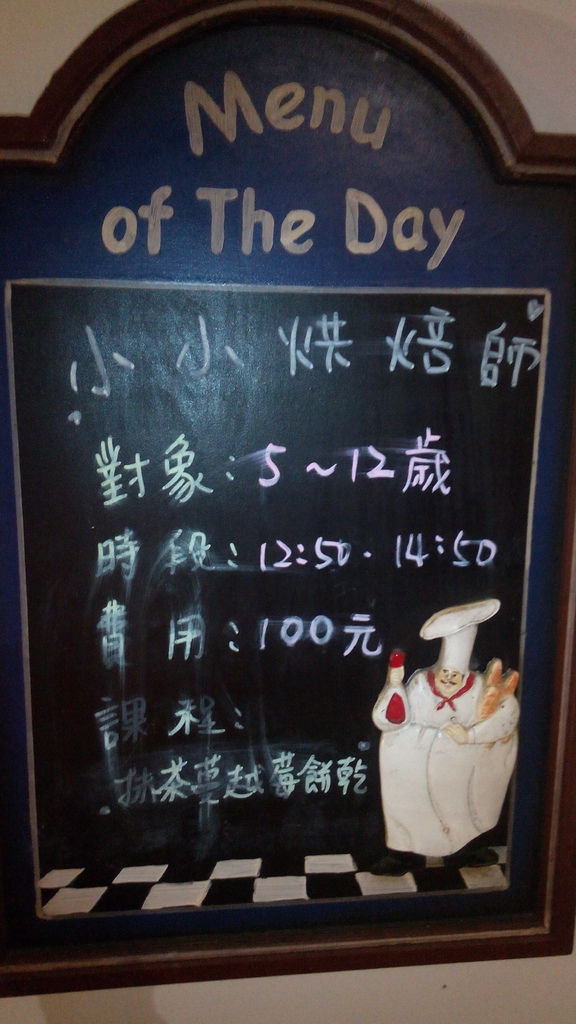 Menu
of The Day
小小烘焙師
對象：5～12歲
時段：12:50．14:50
費用：100元
課程：
抹茶蔓越莓餅乾